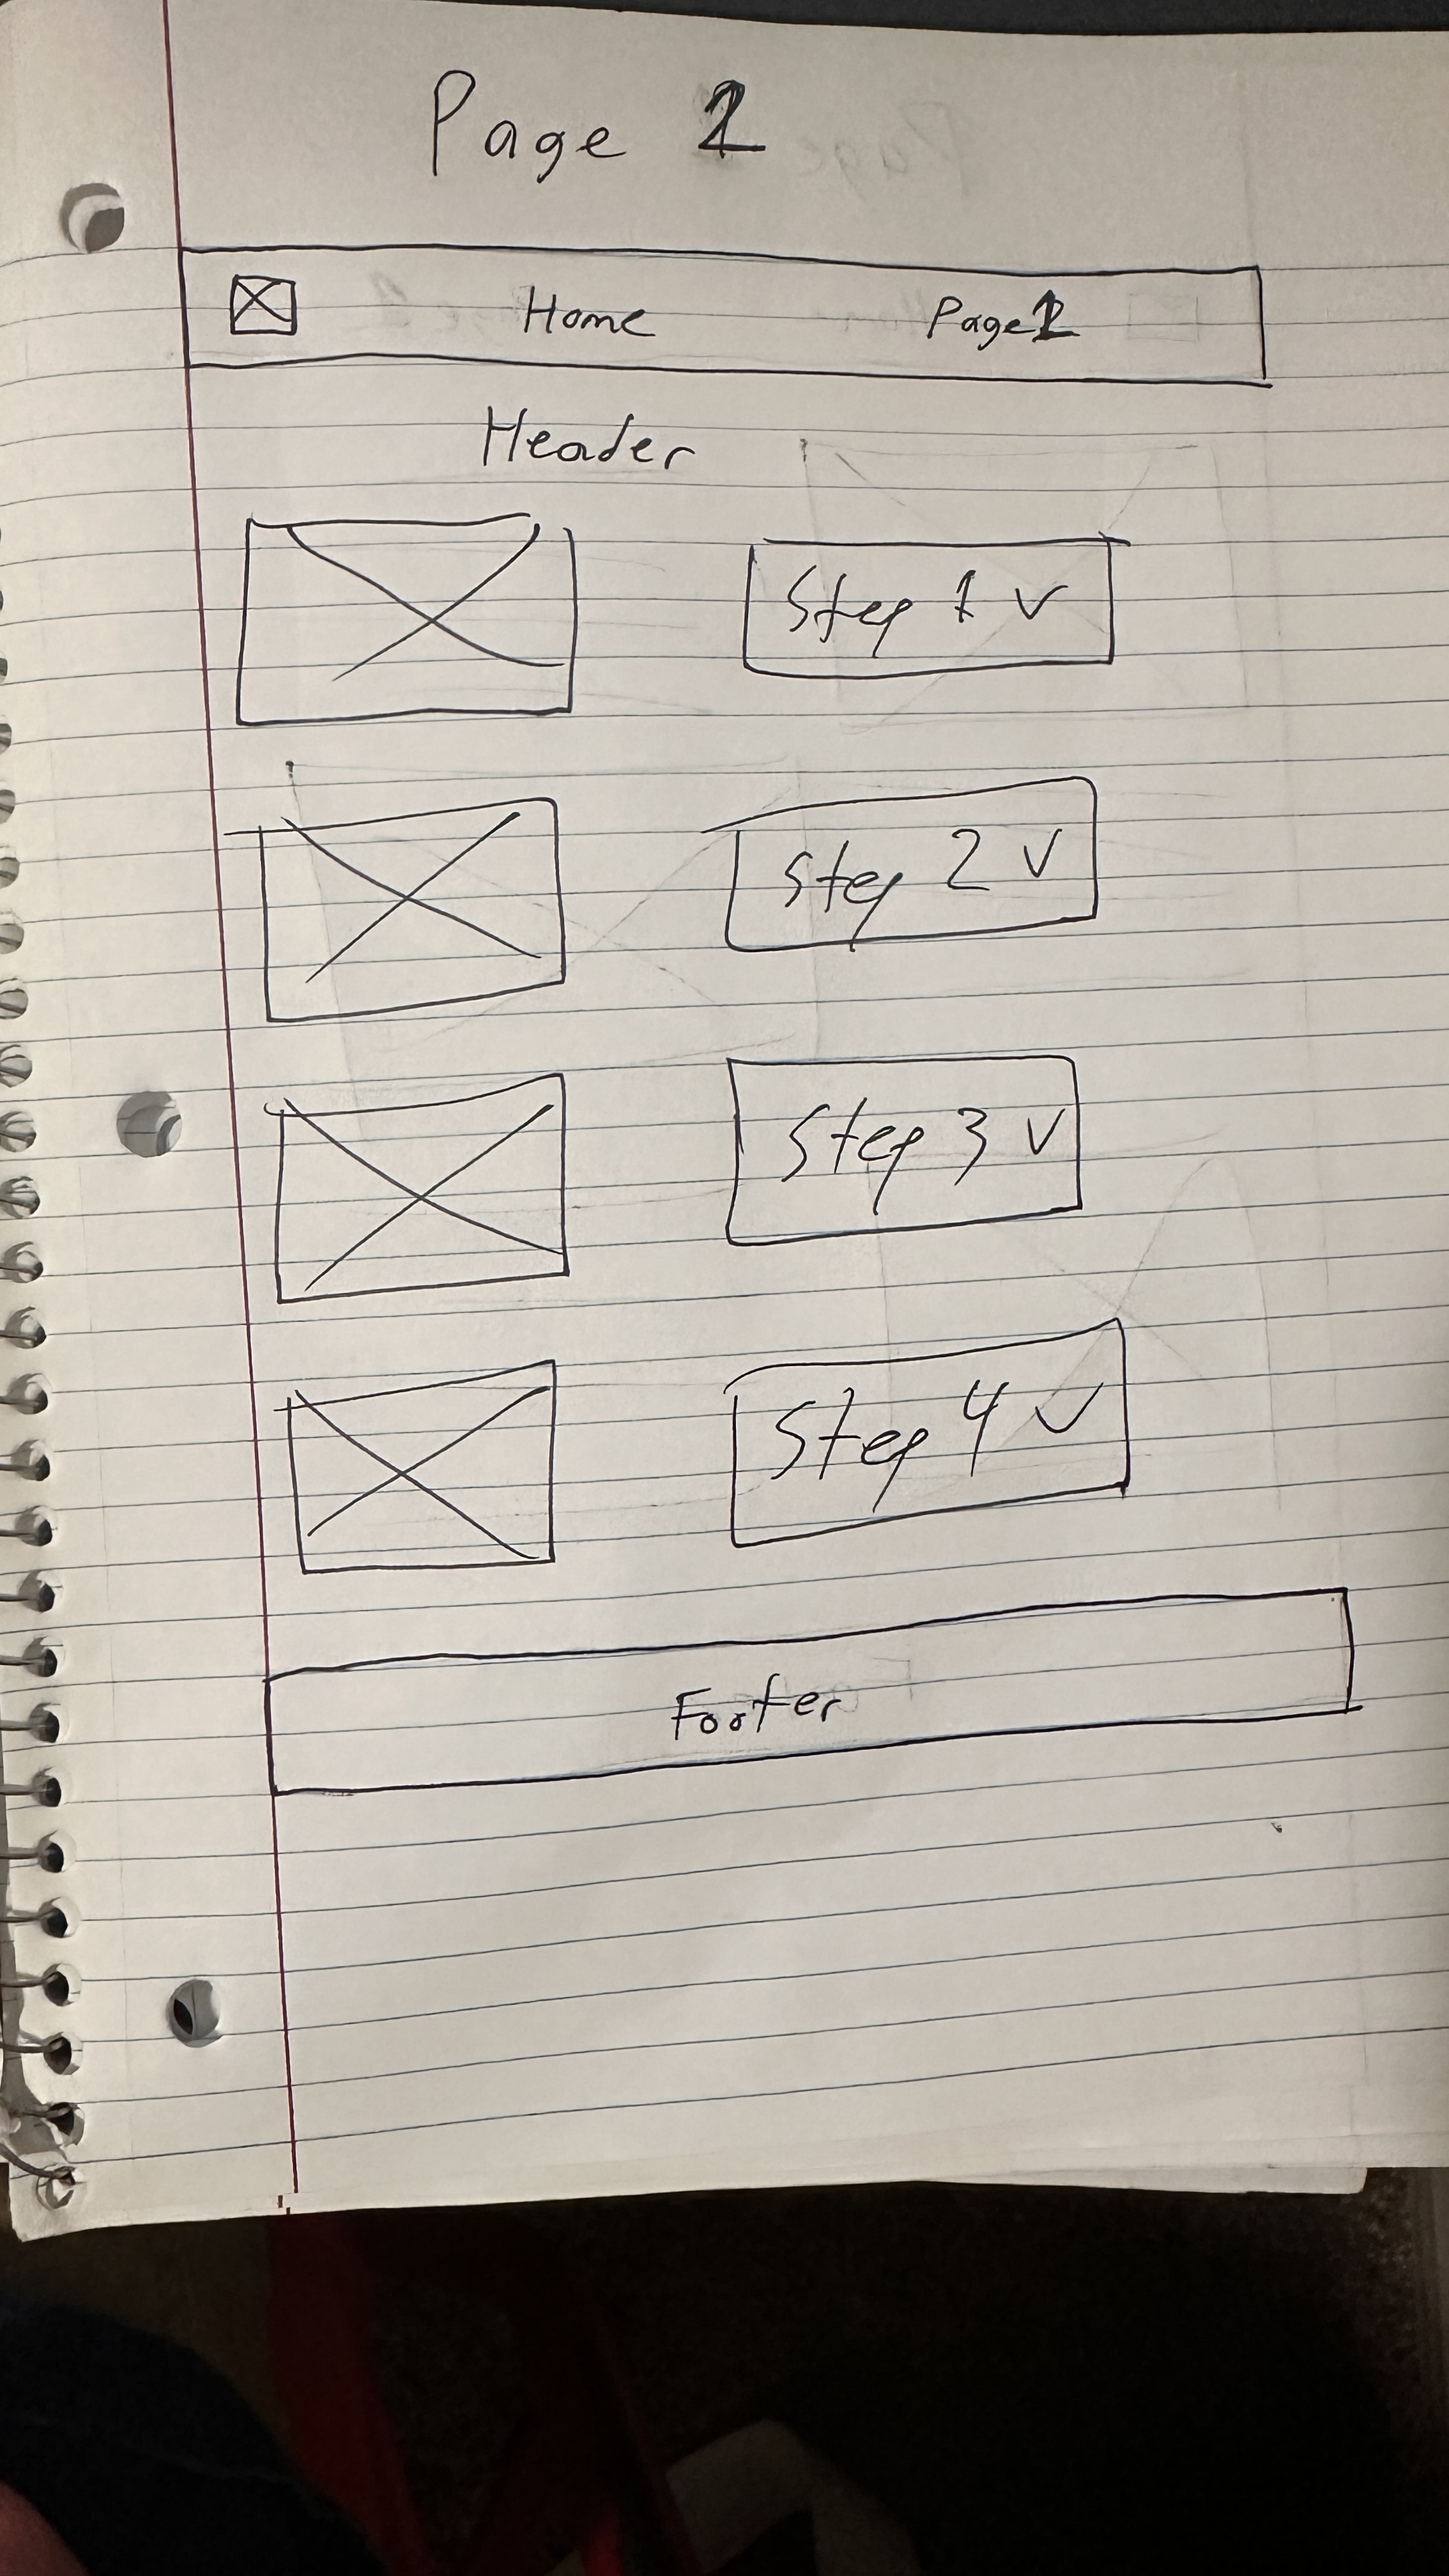 Page 1
Home Page 1
Header
Step 1
Step 2
Step 3
Step 4
Footer